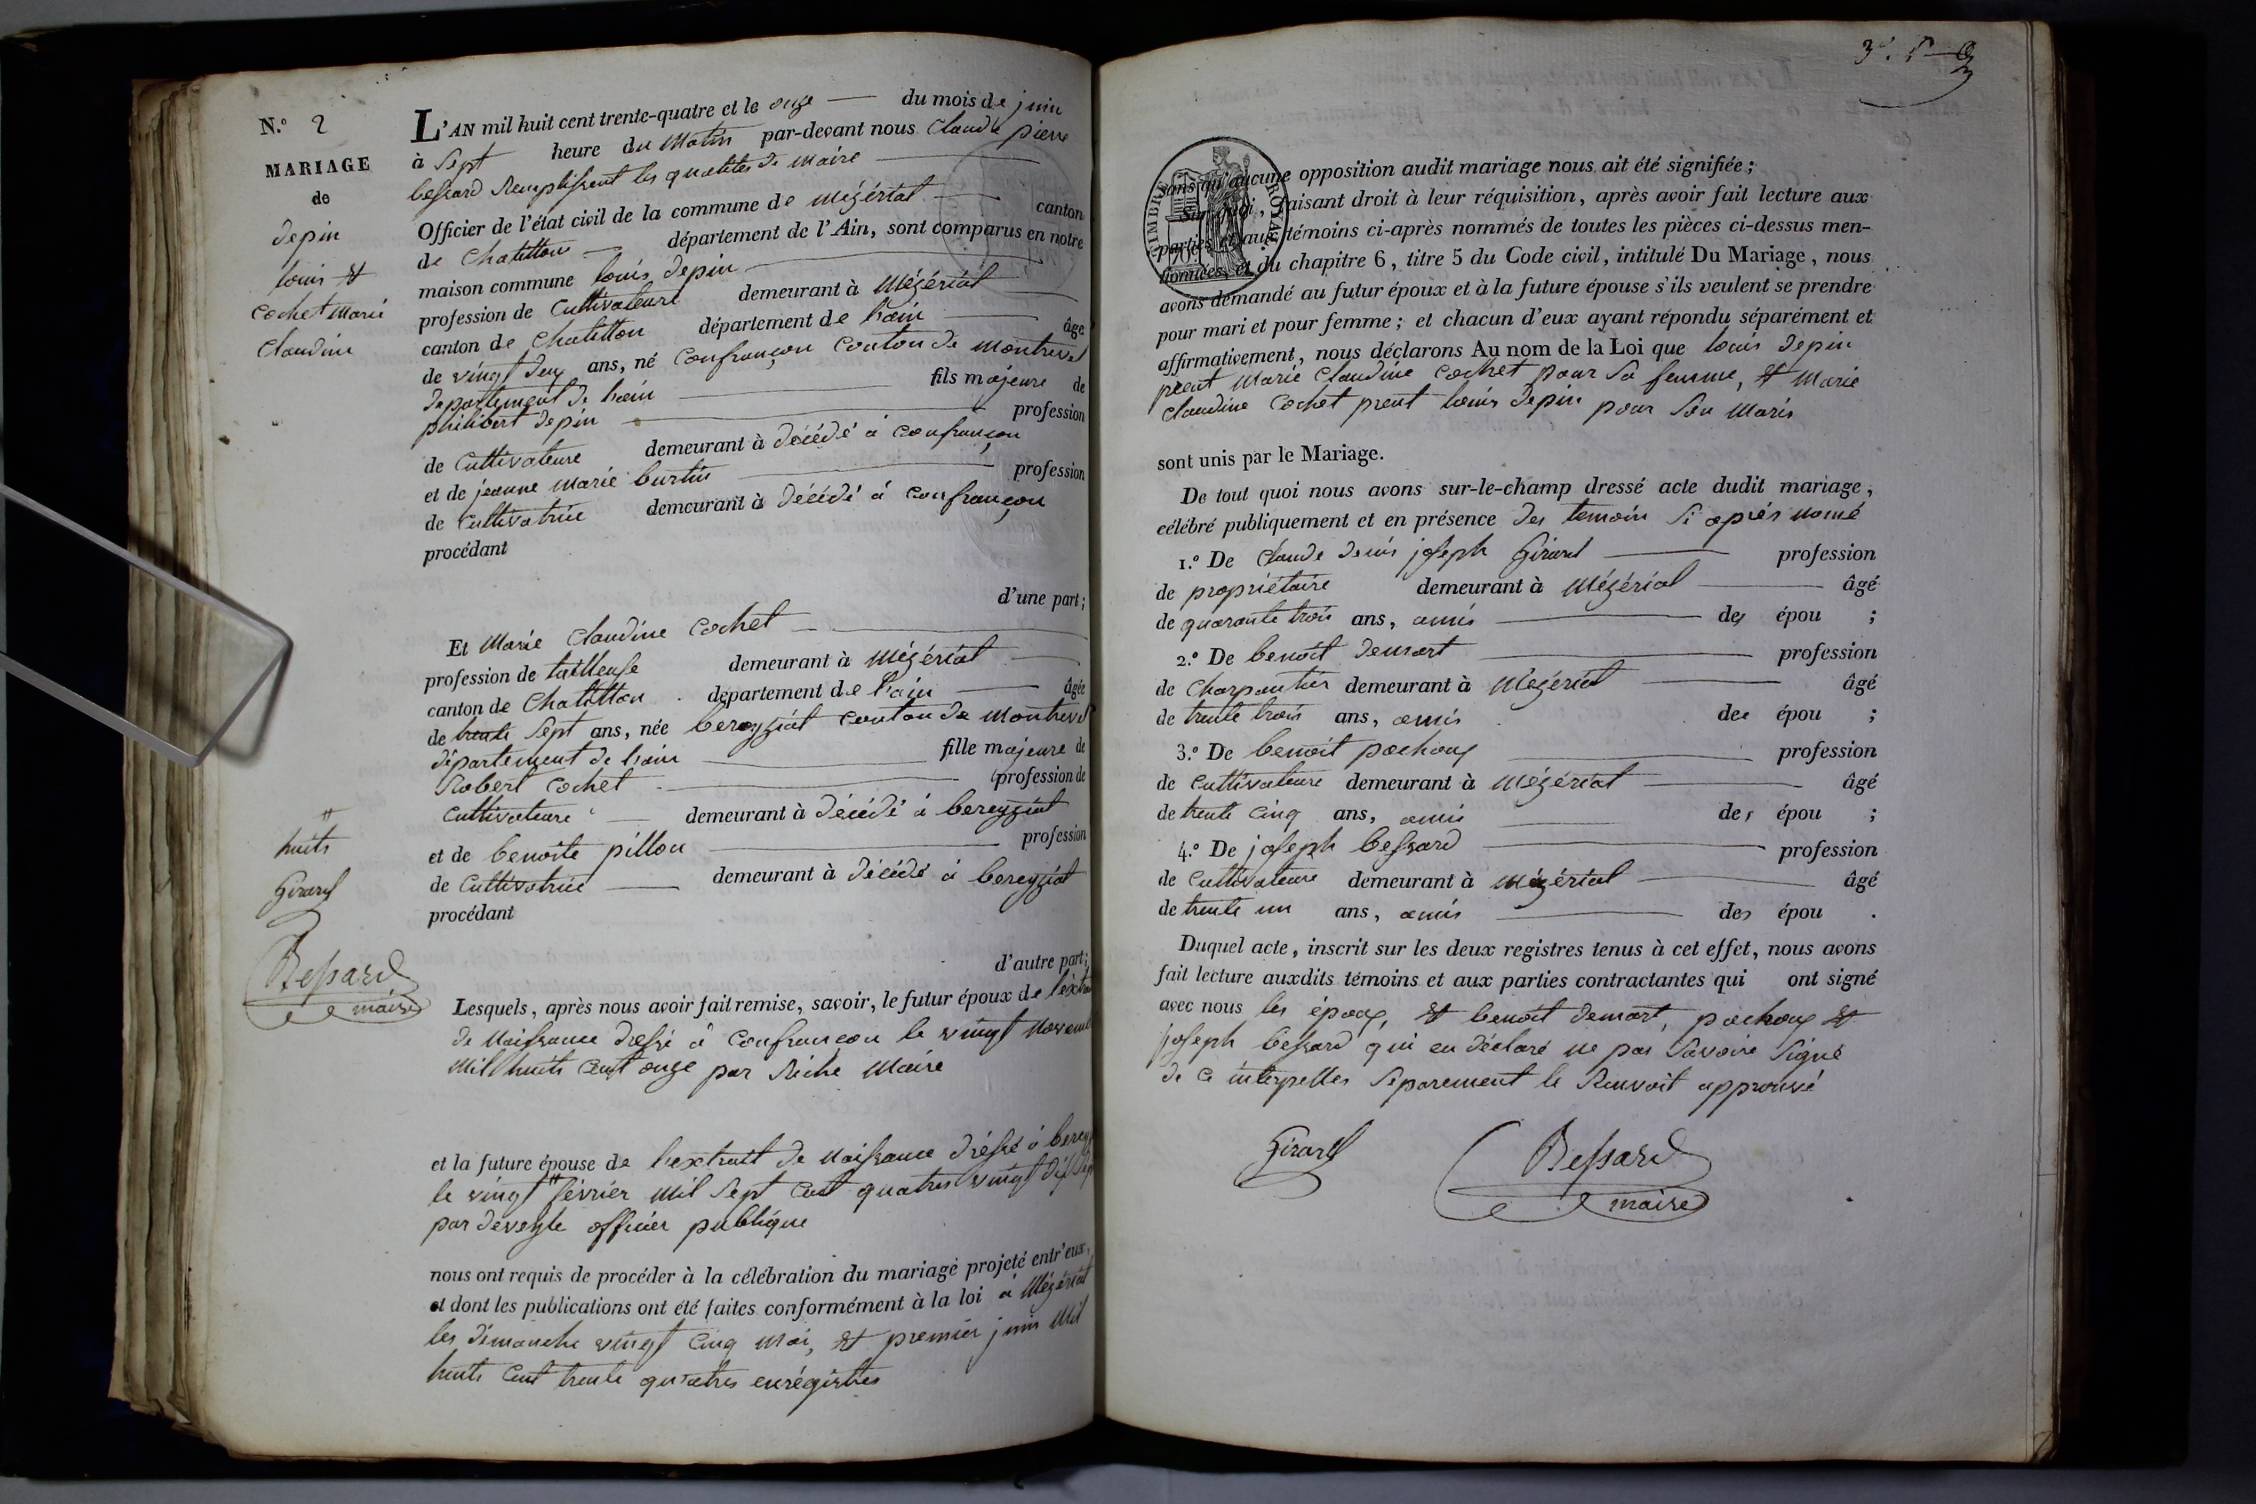 N.° 2
MARIAGE
de
depin
louis et
cochet Marie
Claudine
L'AN mil huit cent trente-quatre et le onze du mois de juin
à Sept heure du Matin par-devant nous Claude pierre
bessard Remplissent les qualités de Maire
Officier de l'état civil de la commune de Mézériat canton
de Chatillon département de l'Ain, sont comparus en notre
maison commune louis depin
profession de Cultivateure demeurant à Mézériat
canton de Chatillon département de l'ain âgé
de vingt deux ans, né Confrançon Canton de Montrevel
département de l'ain fils majeure de
philibert depin profession
de Cultivateure demeurant à décédé à Confrançon
et de jeanne Marie burtin profession
de Cultivatrice demeurant à décédé à Confrançon
procédant
d'une part;
Et Marie Claudine Cochet
profession de tailleuse demeurant à Mézériat
canton de Chatillon département de l'ain âgée
de trente Sept ans, née bereyziat Canton de Montrevel
département de l'ain fille majeure de
Robert Cochet profession de
Cultivateure demeurant à décédé à bereyziat
et de benoite pillon profession
de Cultivatrice demeurant à décédé à bereyziat
procédant
d'autre part;
huits
Girard
Bessard
maire
Lesquels, après nous avoir fait remise, savoir, le futur époux de l'extra
de Naissance dressé à Confrançon le vingt Novem
Mil huits Cent onze par Maire
et la future épouse de l'extrait de Naissance dressé à berey
le vingt " février Mil Sept Cent quatres vingt dix Sep
par officier publique
nous ont requis de procéder à la célébration du mariage projeté entr'eux,
et dont les publications ont été faites conformément à la loi à Mézériat
les dimanche vingt Cinq Mai, et premier juin Mil
huits Cent trente quatres enrégistres
TIMBRE ROYAL
sans qu'aucune opposition audit mariage nous ait été signifiée;
Sur quoi, faisant droit à leur réquisition, après avoir fait lecture aux
parties et aux témoins ci-après nommés de toutes les pièces ci-dessus men-
tionnées, et du chapitre 6, titre 5 du Code civil, intitulé Du Mariage, nous
avons demandé au futur époux et à la future épouse s'ils veulent se prendre
pour mari et pour femme; et chacun d'eux ayant répondu séparément et
affirmativement, nous déclarons Au nom de la Loi que louis depin
prent Marie Claudine Cochet pour Sa femme, et Marie
Claudine Cochet prent louis depin pour Son Maris
sont unis par le Mariage.
De tout quoi nous avons sur-le-champ dressé acte dudit mariage,
célébré publiquement et en présence des temoin Si après nomé
1.° De Claude denis joseph Girard profession
de propriétaire demeurant à Mézériat âgé
de quarante trois ans, amis des épou ;
2.° De benoit demart profession
de Charpentier demeurant à Mézériat âgé
de trente trois ans, amis des épou ;
3.° De benoit pochoux profession
de Cultivateure demeurant à Mézériat âgé
de trente Cinq ans, amis des épou ;
4.° De joseph bessard profession
de Cultivateure demeurant à Mézériat âgé
de trente un ans, amis des épou .
Duquel acte, inscrit sur les deux registres tenus à cet effet, nous avons
fait lecture auxdits témoins et aux parties contractantes qui ont signé
avec nous les époux, et benoit demart, pochoux et
joseph bessard qui en déclaré ne pas Savoire Signé
de Ce interpelles Séparement le Renvoit approuvé
Girard
Bessard
maire